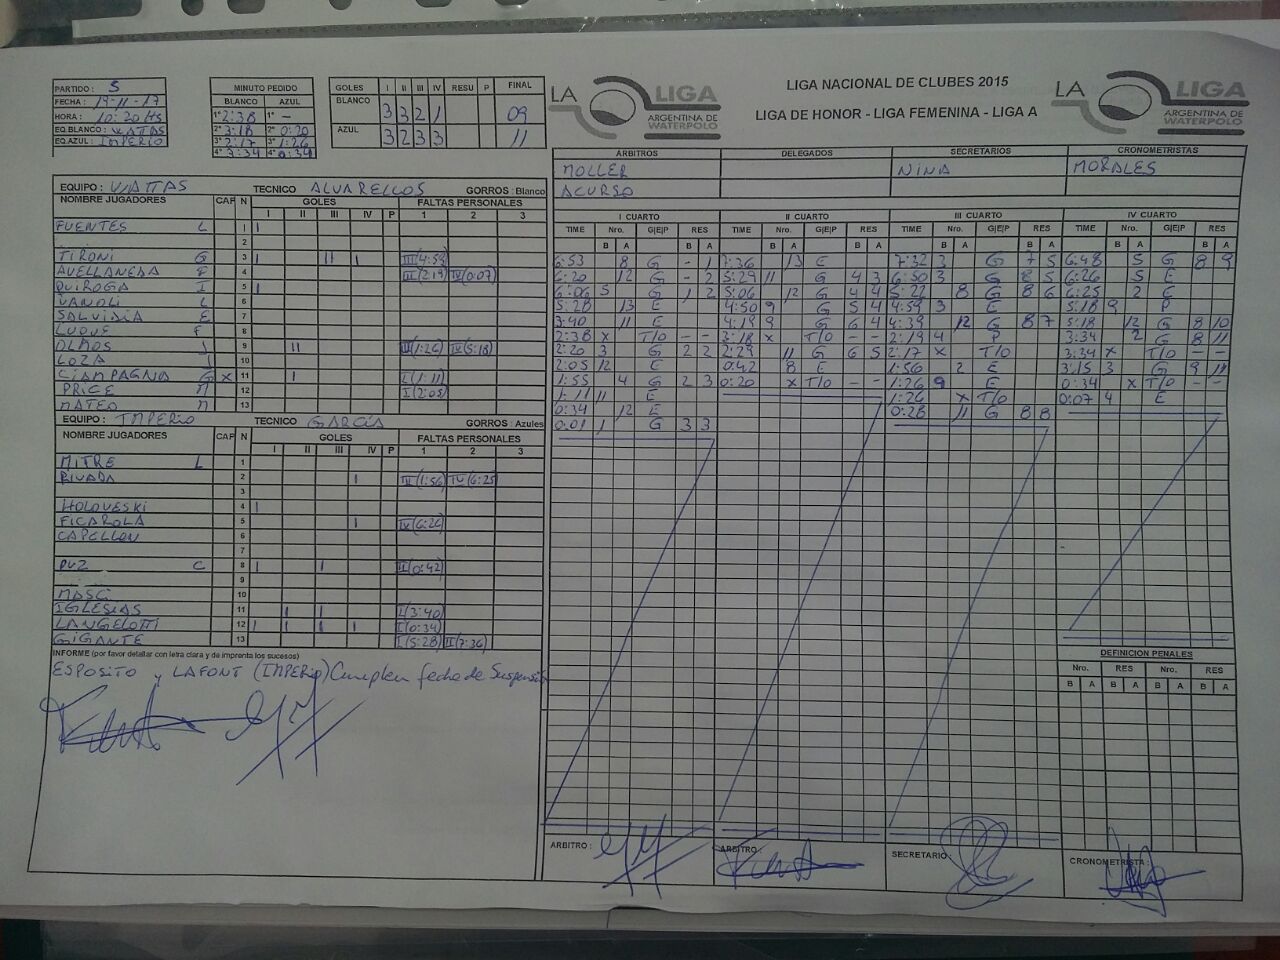 PARTIDO : 5
FECHA : 19-11-17
HORA : 10:20 HS
EQ.BLANCO : VIATTAS
EQ.AZUL : IMPERIO
MINUTO PEDIDO
BLANCO AZUL
1º 2:38 1º —
2º 3:18 2º 0:20
3º 2:17 3º 1:26
4º 3:34 4º 0:34
GOLES I II III IV RESU P FINAL
BLANCO 3 3 2 1 09
AZUL 3 2 3 3 11
LA LIGA ARGENTINA DE WATERPOLO
LIGA NACIONAL DE CLUBES 2015
LIGA DE HONOR - LIGA FEMENINA - LIGA A
LA LIGA ARGENTINA DE WATERPOLO
ARBITROS DELEGADOS SECRETARIOS CRONOMETRISTAS
MOLLER NINA MORALES
ACURSO
EQUIPO : VIATTAS TECNICO ALVARELLOS GORROS : Blanco
NOMBRE JUGADORES CAP N GOLES FALTAS PERSONALES
I II III IV P 1 2 3
FUENTES L 1 I
2
TIRONI G 3 I II I III(4:59)
AVELLANEDA F 4 III(2:19) IV(0:07)
QUIROGA I 5 I
VANOLI L 6
SALVIDIA E 7
LUQUE F 8
OLMOS J 9 II III(1:26) IV(5:18)
LOZA J 10
CIAMPAGNA G X 11 I I(1:11)
PRICE M 12 I(2:05)
MATEO M 13
EQUIPO : IMPERIO TECNICO GARCÍA GORROS : Azules
NOMBRE JUGADORES CAP N GOLES FALTAS PERSONALES
I II III IV P 1 2 3
MITRE L 1
RIVADA 2 I III(1:56) IV(6:25)
3
HOLOVESKI 4 I
FICAROLA 5 I IV(6:26)
CAPELLON 6
7
PUZ C 8 I I II(0:42)
9
MASCI 10
IGLESIAS 11 I I I(3:40)
LANGELOTTI 12 I I I I I(0:34)
GIGANTE 13 I(5:28) II(7:36)
INFORME (por favor detallar con letra clara y de imprenta los sucesos)
ESPOSITO y LAFONT (IMPERIO) Cumplen fecha de Suspensión
I CUARTO
TIME Nro. G|E|P RES
B A B A
6:53 8 G - 1
6:20 12 G - 2
6:06 5 G 1 2
5:28 13 E
3:40 11 E
2:38 X T/O - -
2:20 3 G 2 2
2:05 12 E
1:55 4 G 2 3
1:11 11 E
0:34 12 E
0:01 1 G 3 3
II CUARTO
TIME Nro. G|E|P RES
B A B A
7:36 13 E
5:29 11 G 4 3
5:06 12 G 4 4
4:50 9 G 5 4
4:19 9 G 6 4
3:18 X T/O - -
2:29 11 G 6 5
0:42 8 E
0:20 X T/O - -
III CUARTO
TIME Nro. G|E|P RES
B A B A
7:32 3 G 7 5
6:50 3 G 8 5
5:22 8 G 8 6
4:59 3 E
4:39 12 G 8 7
2:19 4 P
2:17 X T/O
1:56 2 E
1:26 9 E
1:26 X T/O
0:28 11 G 8 8
IV CUARTO
TIME Nro. G|E|P RES
B A B A
6:48 5 G 8 9
6:26 5 E
6:25 2 E
5:18 9 P
5:18 12 G 8 10
3:34 2 G 8 11
3:34 X T/O - -
3:15 3 G 9 11
0:34 X T/O - -
0:07 4 E
DEFINICION PENALES
Nro. RES Nro. RES
B A B A B A B A
ARBITRO : ARBITRO : SECRETARIO : CRONOMETRISTA :